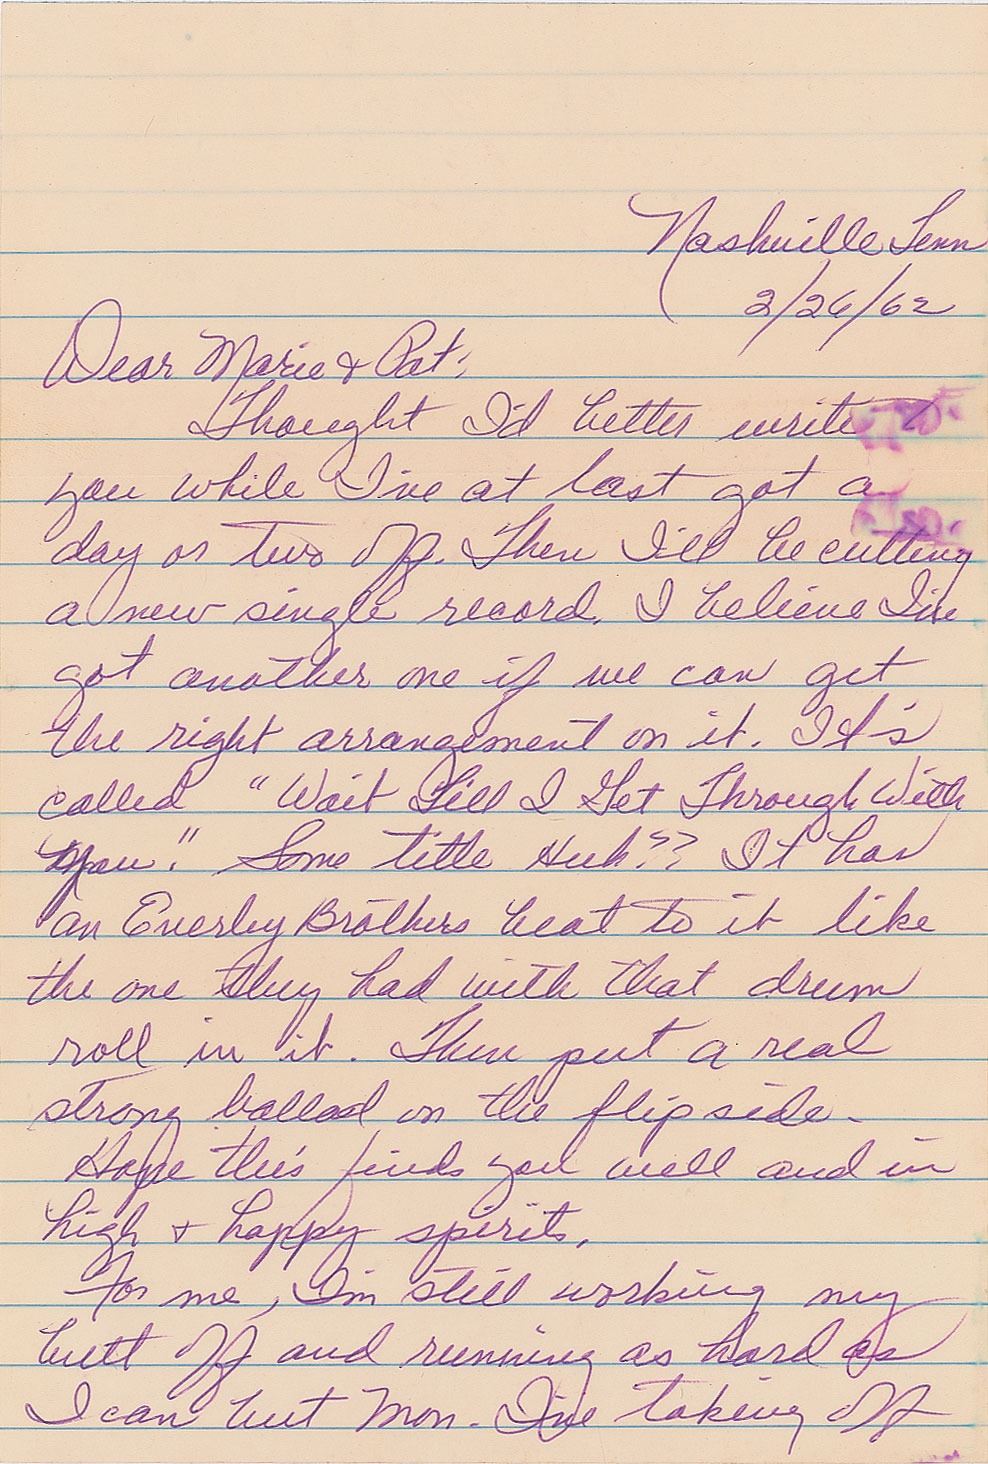 Nashville Tenn
2/26/62
Dear Marie & Pat;
Thought I'd better write to
you while I've at last got a
day or two off. Then I'll be cutting
a new single record. I believe I've
got another one if we can get
the right arrangement on it. It's
called "Wait Till I Get Through With
You." Some title Huh?? It has
an Everley Brothers beat to it like
the one they had with that drum
roll in it. Then put a real
strong ballad on the flipside.
Hope this finds you well and in
high & happy spirits.
For me, I'm still working my
butt off and running as hard as
I can but Mon. I've taking off